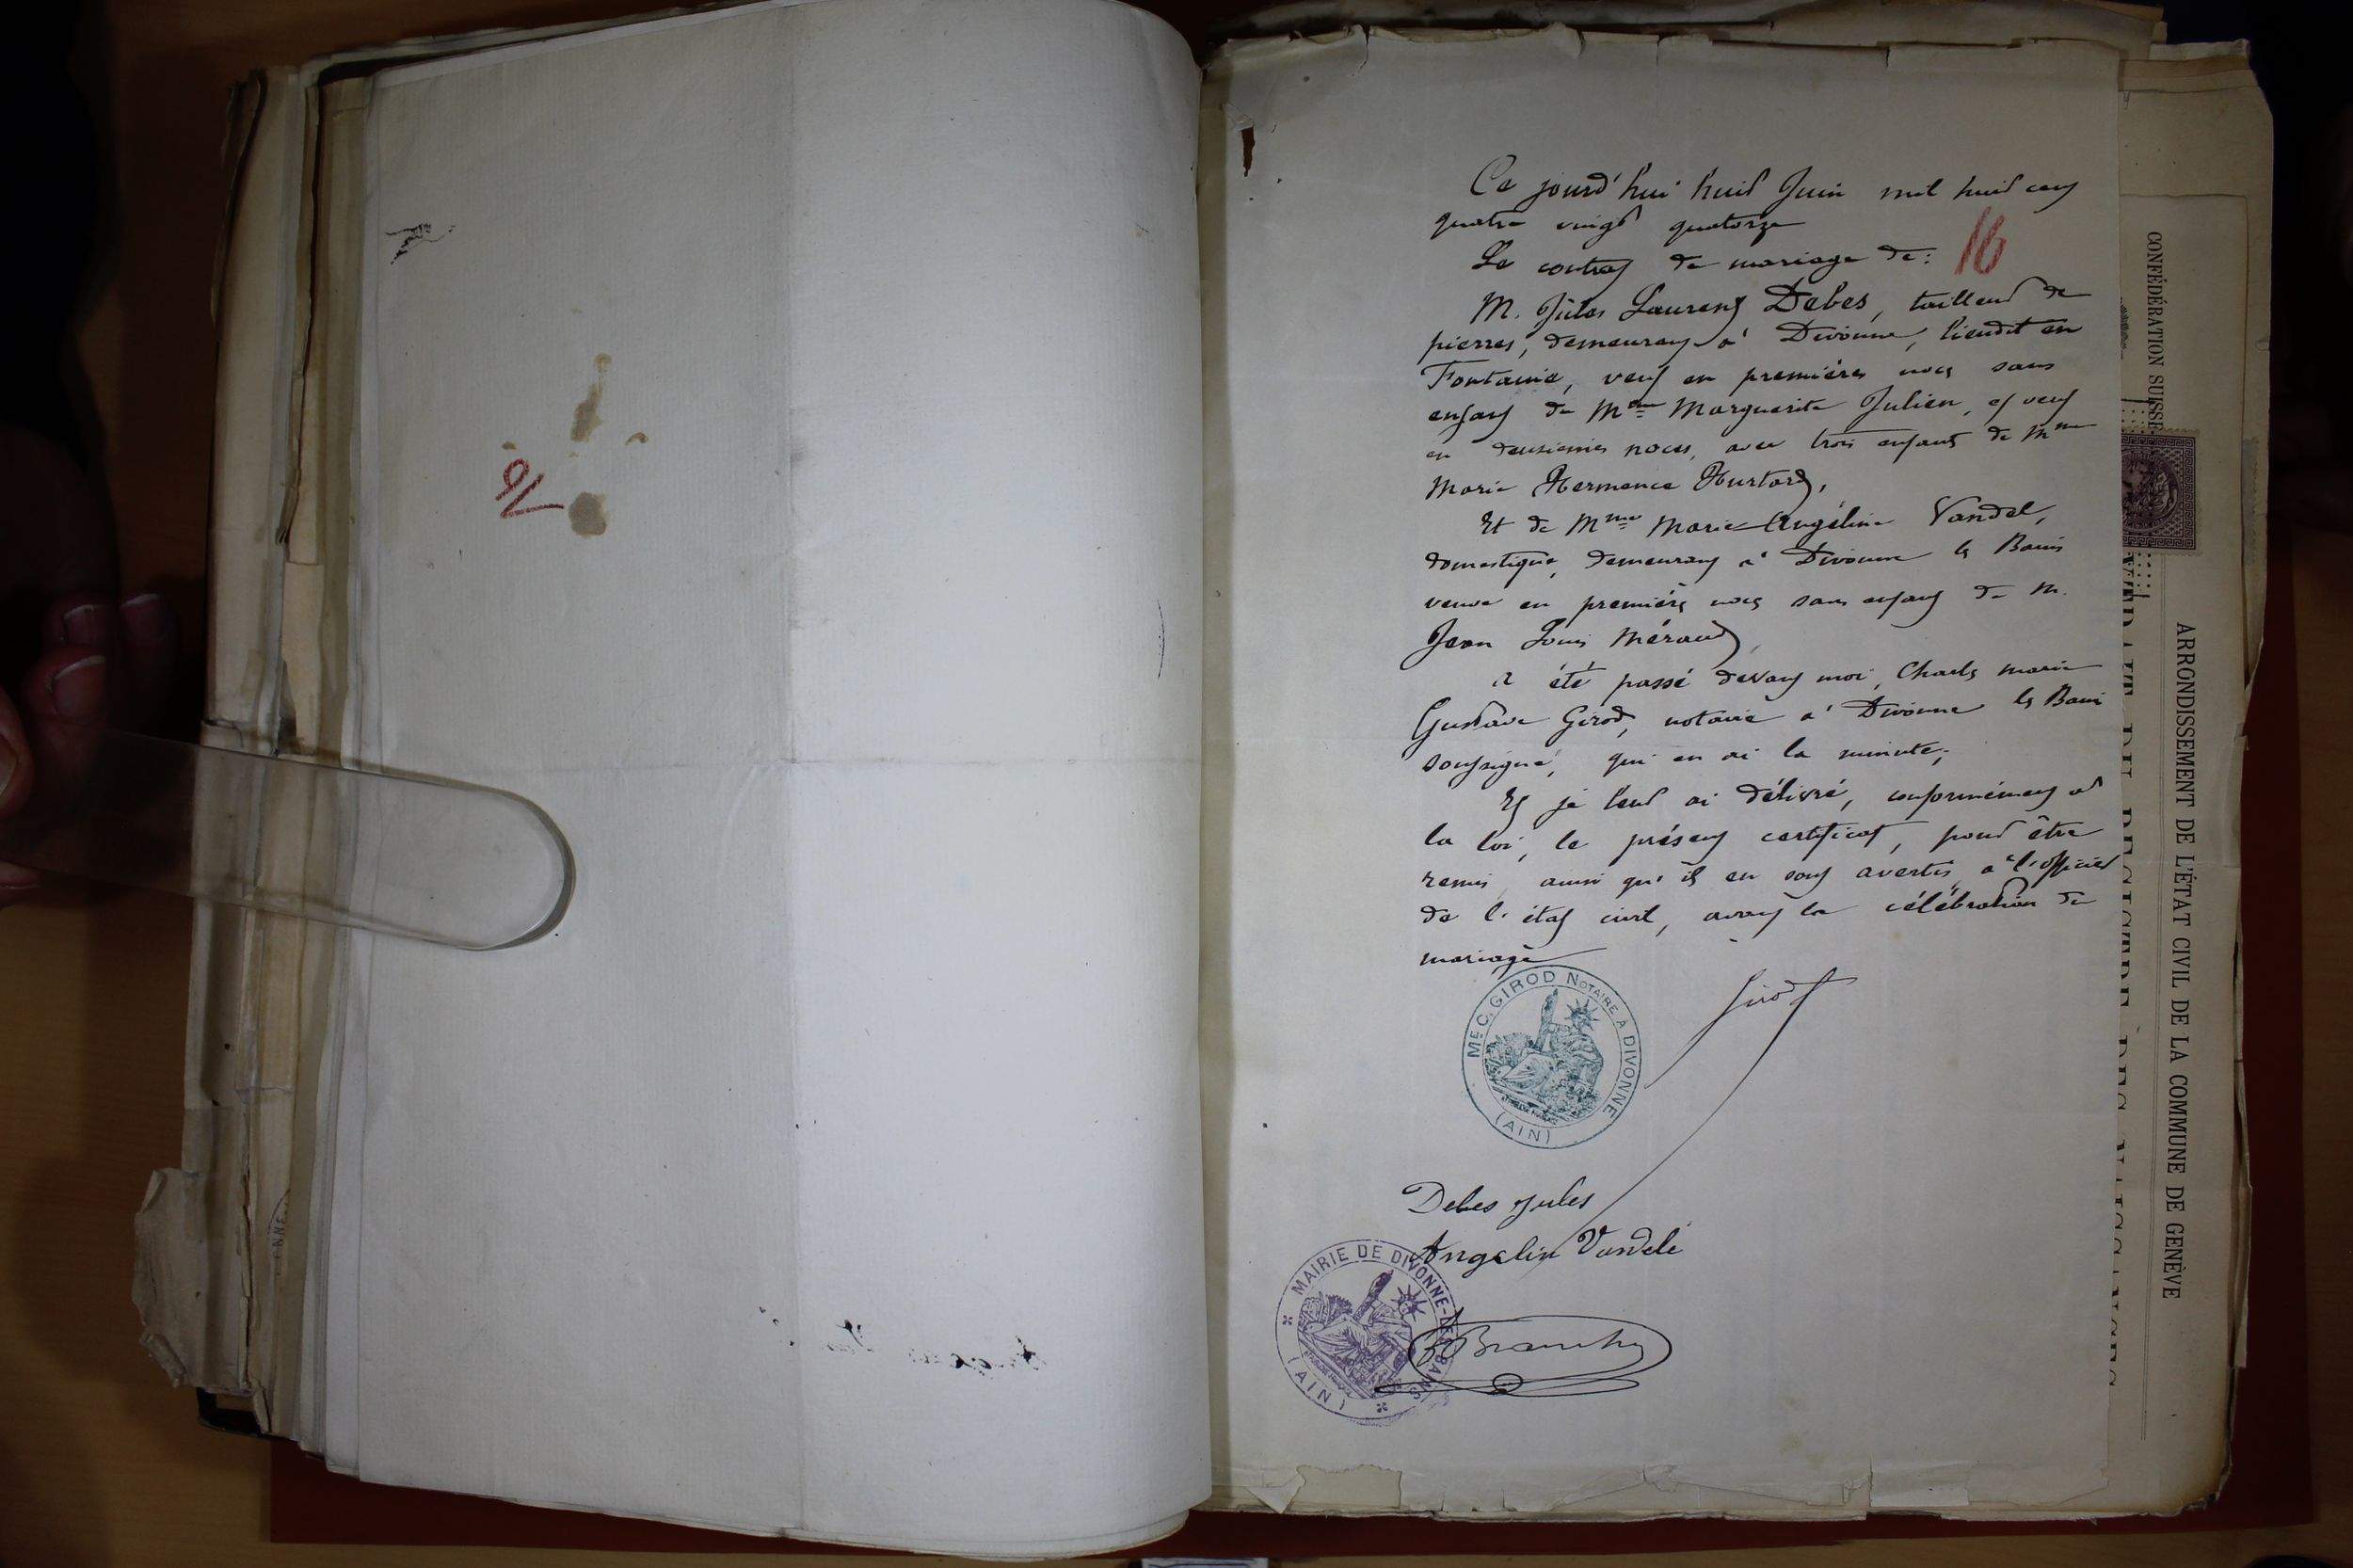 Ce jourd'hui huit Juin mil huit cent
quatre vingt quatorze
Le contrat de mariage de :
16
M. Jules Laurent Debes, tailleur de
pierres, demeurant à Divonne, lieudit en
Fontaine, veuf en premières noces sans
enfant de Mme Marguerite Julien, et veuf
en deuxièmes noces, avec trois enfants de Mme
Marie Hermance Hurtard,
Et de Mme Marie Angéline Vandel,
domestique, demeurant à Divonne les Bains
veuve en premières noces sans enfant de M.
Jean Louis Méraud,
a été passé devant moi, Charles Marie
Gustave Girod, notaire à Divonne les Bains
soussigné, qui en ai la minute,
Et je leur ai délivré, conformément à
la loi, le présent certificat, pour être
remis ainsi qu'ils en sont avertis à l'officier
de l'état civil, avant la célébration du
mariage
Girod
ME C. GIROD NOTAIRE À DIVONNE (AIN)
Debes Jules
Angelin Vandelé
MAIRIE DE DIVONNE-LES-BAINS (AIN)
CONFÉDÉRATION SUISSE
ARRONDISSEMENT DE L'ÉTAT CIVIL DE LA COMMUNE DE GENÈVE